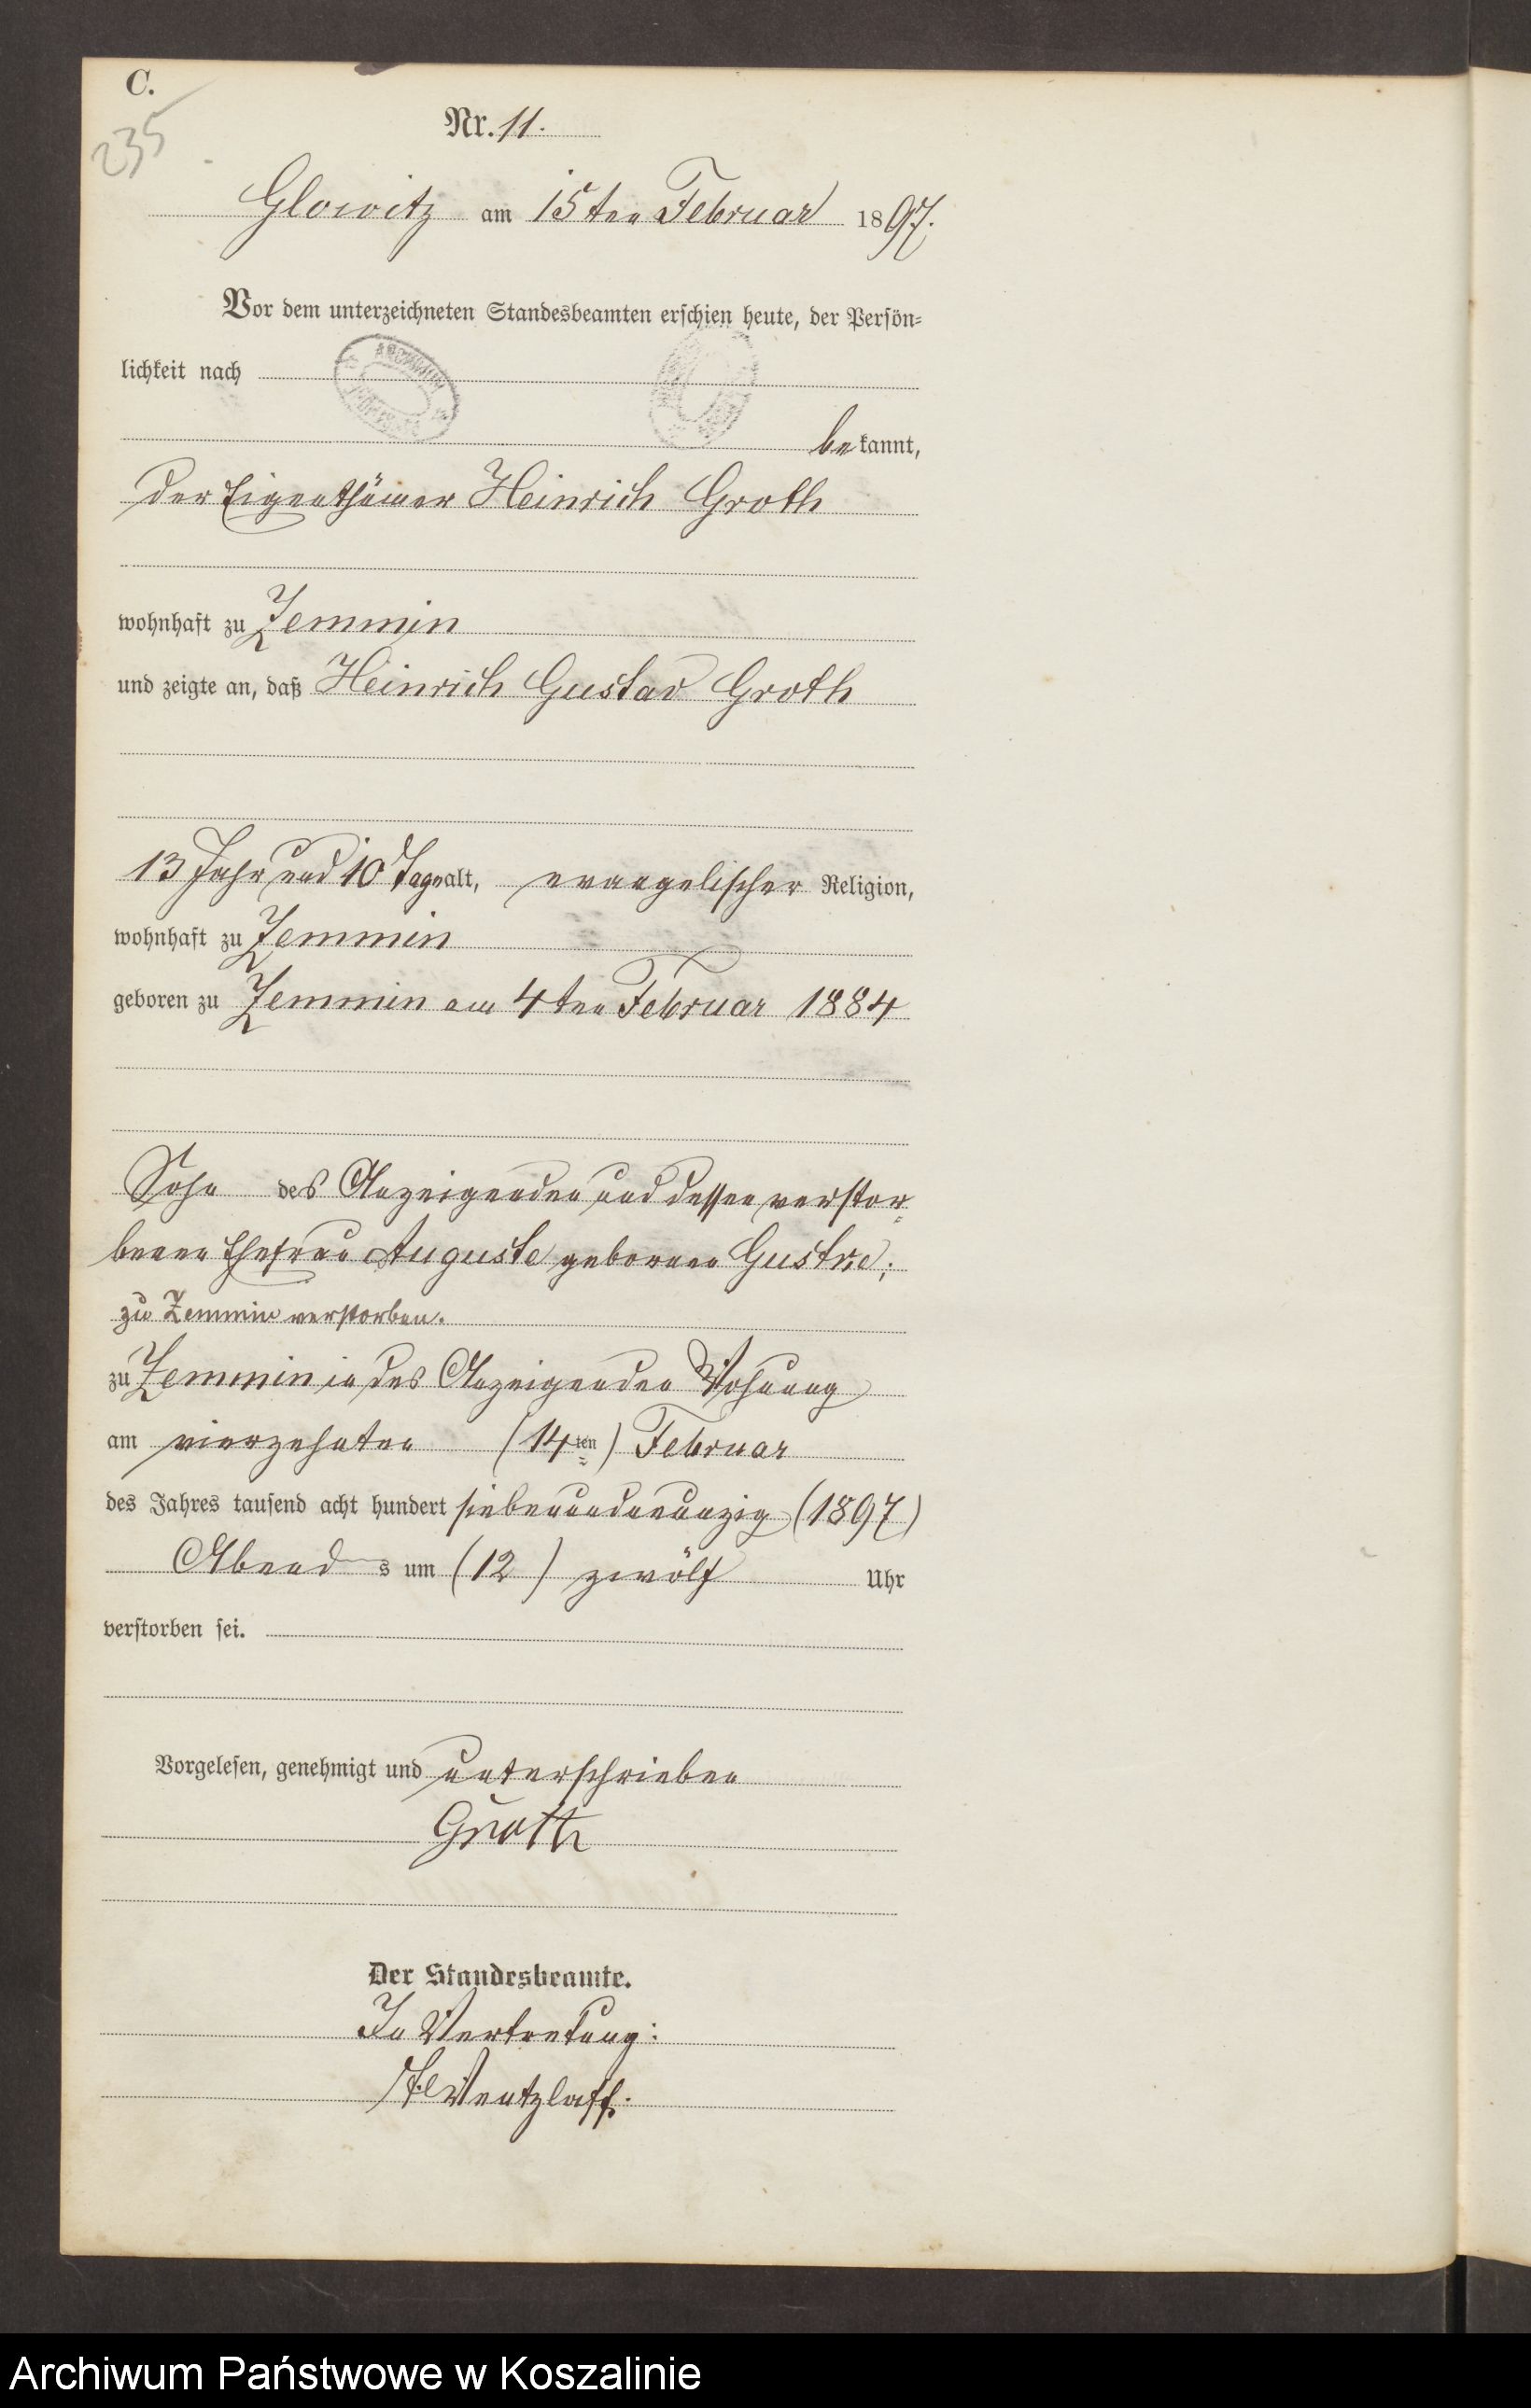 C.
235
Nr. 11.
Glowitz am 15ten Februar 1897.
Vor dem unterzeichneten Standesbeamten erschien heute, der Persön-
lichkeit nach
bekannt,
der Eigenthümer Heinrich Groth
wohnhaft zu Zemmin
und zeigte an, daß Heinrich Gustav Groth
13 Jahr und 10 Tage alt, evangelischer Religion,
wohnhaft zu Zemmin
geboren zu Zemmin am 4ten Februar 1884
Sohn des Anzeigenden und dessen verstor-
benen Ehefrau Auguste geborenen
zu Zemmin verstorben.
zu Zemmin in des Anzeigenden Wohnung
am vierzehnten (14ten) Februar
des Jahres tausend acht hundert siebenundneunzig (1897)
Abends um (12) zwölf Uhr
verstorben sei.
Vorgelesen, genehmigt und unterschrieben
Groth
Der Standesbeamte.
In Vertretung:
Wentzlaff.
Archiwum Państwowe w Koszalinie